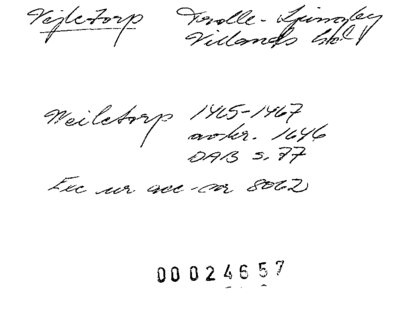 Vejletorp Trolle-Ljungby
Villands hd
Weiletorp 1465-1467
avskr. 1646
DAB s. 77
Exc ur acc-nr 8062
00024657